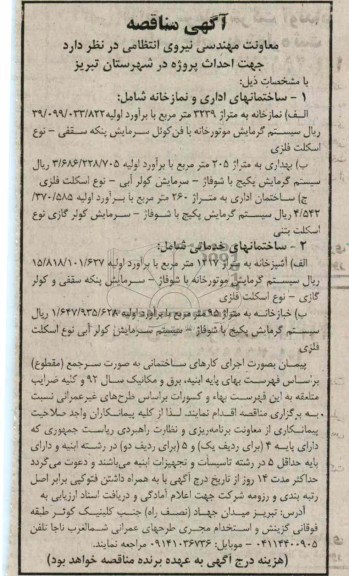 آگهی مناقصه
معاونت مهندسی نیروی انتظامی در نظر دارد
جهت احداث پروژه در شهرستان تبریز
با مشخصات ذیل:
۱ - ساختمانهای اداری و نمازخانه شامل:
الـف) نمازخانه به متراژ ۳۲۳۹ متر مربع با برآورد اولیه۳۹/۰۹۹/۰۳۳/۸۲۲
ریال سیستم گرمایش موتورخانه با فن‌کوئل سرمایش پنکه سقفی - نوع
اسکلت فلزی
ب) بهداری به متراژ ۲۰۵ متر مربع با برآورد اولیه ۳/۶۸۶/۲۲۸/۷۰۵ ریال
سیستم گرمایش پکیج با شوفاژ - سرمایش کولر آبی - نوع اسکلت فلزی
ج) ساختمان اداری به متراژ ۲۶۰ متر مربع با برآورد اولیه ۳۷۰/۵۸۵/
۴/۵۴۳ ریال سیستم گرمایش پکیج با شوفاژ - سرمایش کولر گازی نوع
اسکلت بتنی
۲ - ساختمانهای خدماتی شامل:
الف) آشپزخانه به متراژ ۱۲۲۷ متر مربع با برآورد اولیه ۱۵/۸۱۸/۱۰۱/۶۳۷
ریال سیستم گرمایش موتورخانه با شوفاژ - سرمایش پنکه سقفی و کولر
گازی - نوع اسکلت فلزی
ب) خبازخانه به متراژ ۹۵ متر مربع با برآورد اولیه ۱/۶۴۷/۹۳۵/۶۲۸ ریال
سیستم گرمایش پکیج با شوفاژ - سیستم سرمایش کولر آبی نوع اسکلت
فلزی
پیمان بصورت اجرای کارهای ساختمانی به صورت سرجمع (مقطوع)
براساس فهرست بهای پایه ابنیه، برق و مکانیک سال ۹۲ و کلیه ضرایب
متعلقه به این فهرست بهاء و کسورات براساس طرح‌های غیرعمرانی نسبت
به برگزاری مناقصه اقدام نمایند. لذا از کلیه پیمانکاران واجد صلاحیت
پیمانکاری از معاونت برنامه‌ریزی و نظارت راهبردی ریاست جمهوری که
دارای پایه ۴ (برای ردیف یک) و ۵ (برای ردیف دو) در رشته ابنیه و دارای
پایه حداقل ۵ در رشته تاسیسات و تجهیزات ابنیه می‌باشند و دعوت می‌گردد
حداکثر مدت ۱۴ روز از تاریخ درج آگهی با به همراه داشتن فتوکپی برابر اصل
رتبه بندی و رزومه شرکت جهت اعلام آمادگی و دریافت اسناد ارزیابی به
آدرس: تبریز میدان جهاد (نصف راه) جنب کلینیک کوثر طبقه
فوقانی گزینش و استخدام مجری طرحهای عمرانی شمالغرب ناجا تلفن
۰۴۱۱۴۴۰۰۹۰۵ - موبایل: ۰۹۱۴۱۰۳۶۷۳۶ مراجعه نمایند.
(هزینه درج آگهی به عهده برنده مناقصه خواهد بود)